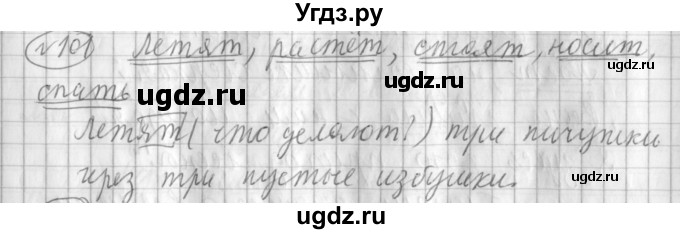 Угдз.ру
№101 Летят, растёт, стоят, носит,
спать
Летят (что делают?) три пичужки
через три пустые избушки.
ugdz.ru ugdz.ru
ugdz.ru ugdz.ru ugdz.ru
ugdz.ru ugdz.ru
ugdz.ru